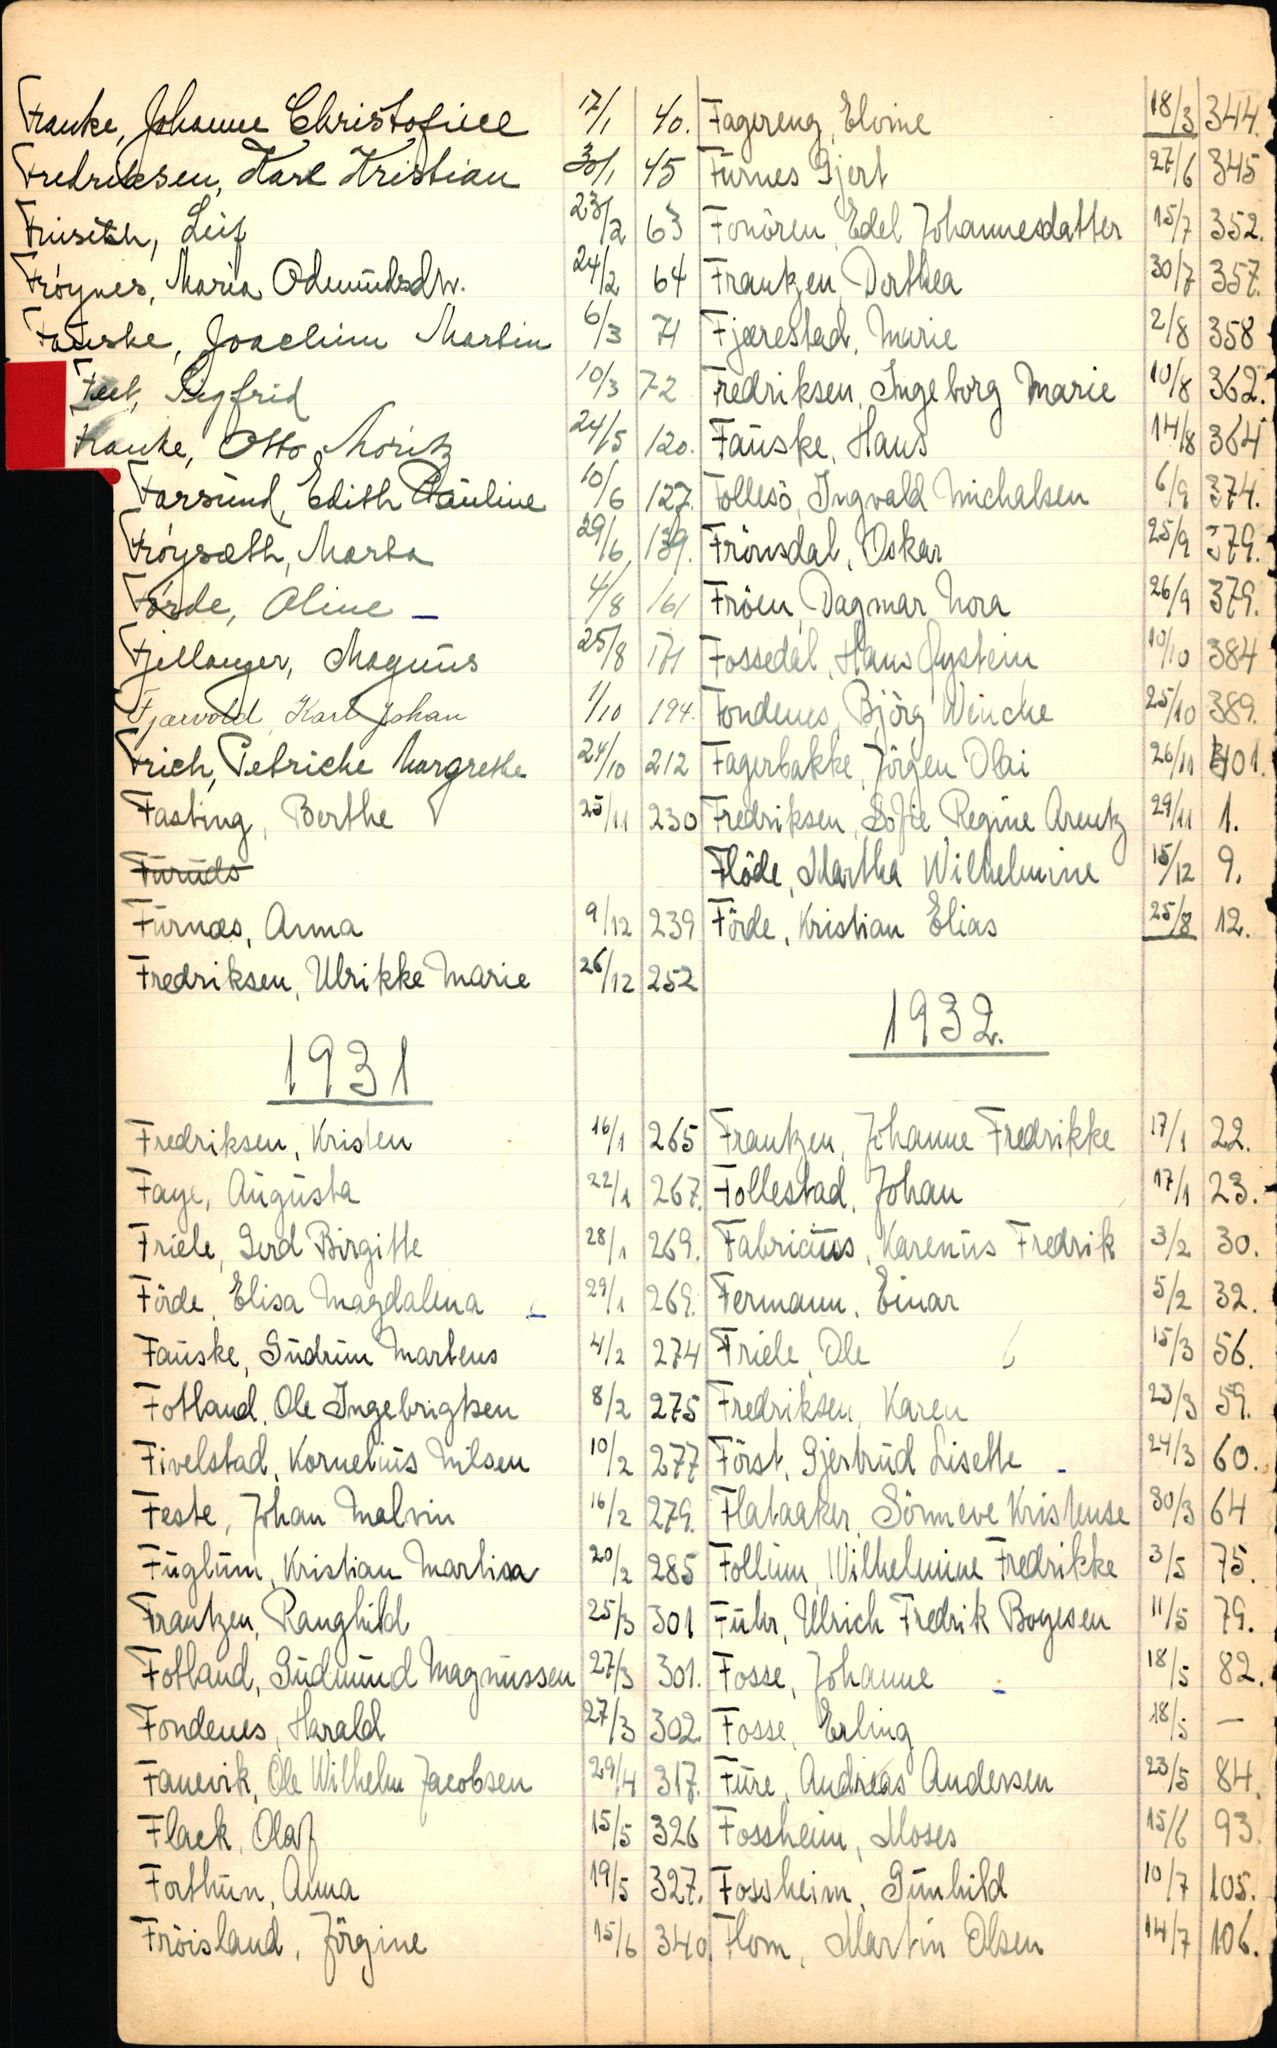 Franke, Johanne Christofine 17/1 40.
Fredriksen, Karl Kristian 30/1 45
Leif 23/2 63
Frøynes, Maria Odmundsdtr. 24/2 64
Fauske, Joachim Martin 6/3 71
Feet, Sigfrid 10/3 72
Franke, Otto Moritz 24/5 120.
Farsund, Edith Pauline 10/6 127.
Frøysæth, Marta 29/6 139.
Førde, Oline 4/8 161
Fjellanger, Magnus 25/8 171
Fjærvold, Karl Johan 1/10 194.
Frich, Petriche Margrethe 24/10 212
Fasting, Berthe 25/11 230
Furuds
Furnæs, Anna 9/12 239
Fredriksen, Ulrikke Marie 26/12 252
1931
Fredriksen, Kristen 16/1 265
Faye, Augusta 22/1 267.
Friele, Gerd Birgitte 28/1 269.
Förde, Elisa Magdalena 29/1 269.
Fauske, Gudrun Martens 4/2 274
Fotland, Ole Ingebrigtsen 8/2 275
Fivelstad, Kornelius Nilsen 10/2 277
Feste, Johan Malvin 16/2 279.
Fuglum, Kristian Martisa 20/2 285
Frantzen, Ranghild 25/3 301
Fotland, Gudmund Magnussen 27/3 301.
Fondenes, Harald 27/3 302
Fanevik, Ole Wilhelm Jacobsen 29/4 317.
Flack, Olaf 15/5 326
Forthun, Anna 19/5 327.
Fröisland, Jörgine 15/6 340.
Fagereng, Elvine 18/3 344.
Furnes Gjert 27/6 345
Fonören, Edel Johannesdatter 15/7 352.
Frantzen, Dorthea 30/7 357.
Fjærestad, Marie 2/8 358
Fredriksen, Ingeborg Marie 10/8 362.
Fauske, Hans 14/8 364
Follesö, Ingvald Michalsen 6/9 374.
Frönsdal, Oskar 25/9 379.
Fröen, Dagmar Nora 26/9 379.
Fossedal, Hans Øystein 10/10 384
Fondenes, Björg Wenche 25/10 389.
Fagerbakke, Jörgen Olai 26/11 401.
Fredriksen, Sofie Regine Arentz 29/11 1.
Flöde, Martha Wilhelmine 15/12 9.
Förde, Kristian Elias 25/8 12.
1932.
Frantzen, Johanne Fredrikke 17/1 22.
Follestad, Johan 17/1 23.
Fabricius, Karenus Fredrik 3/2 30.
Fermann, Einar 5/2 32.
Friele, Ole 15/3 56.
Fredriksen, Karen 23/3 59.
Först, Gjertrud Lisette 24/3 60.
Flataaker, Sönneve Kristense 30/3 64
Follum, Wilhelmine Fredrikke 3/5 75.
Fuhr, Ulrich Fredrik Boyesen 11/5 79.
Fosse, Johanne 18/5 82.
Fosse, Erling 18/5 —
Fure, Andreas Andersen 23/5 84.
Fossheim, Moses 15/6 93.
Fossheim, Gunhild 10/7 105.
Flom, Martin Olsen 14/7 106.